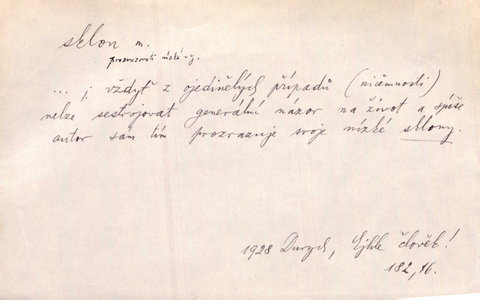 sklon m.
prozrazovati nízké -y.
... ; vždyť z ojedinělých případů (ničemnosti)
nelze sestrojovat generální názor na život a spíše
autor sám tím prozrazuje svoje nízké sklony.
1928 Durych, Ejhle člověk!
182, 16.